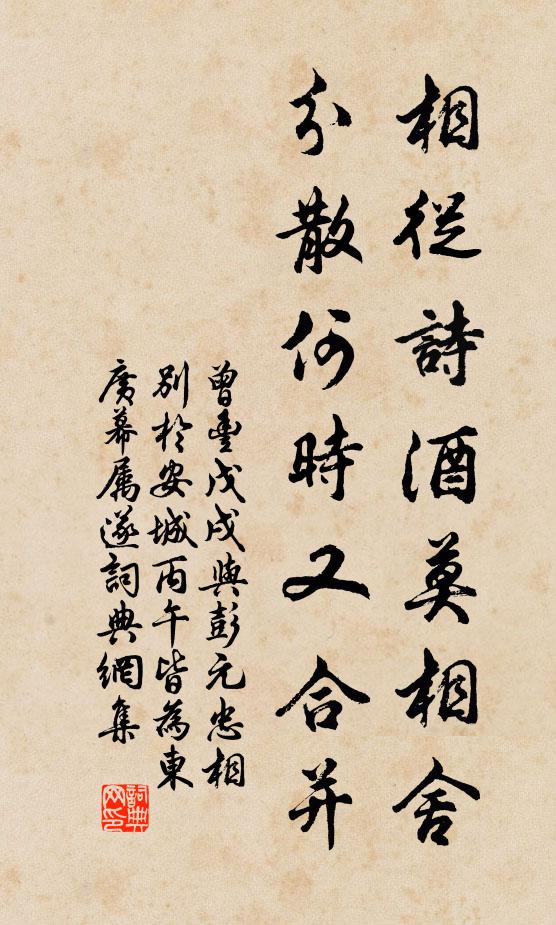 相從詩酒莫相舍
分散何時又合并
曾豊戊戌與彭元忠相
別於安城丙午皆為東
廣幕屬遂詞典網集
詞典
网印